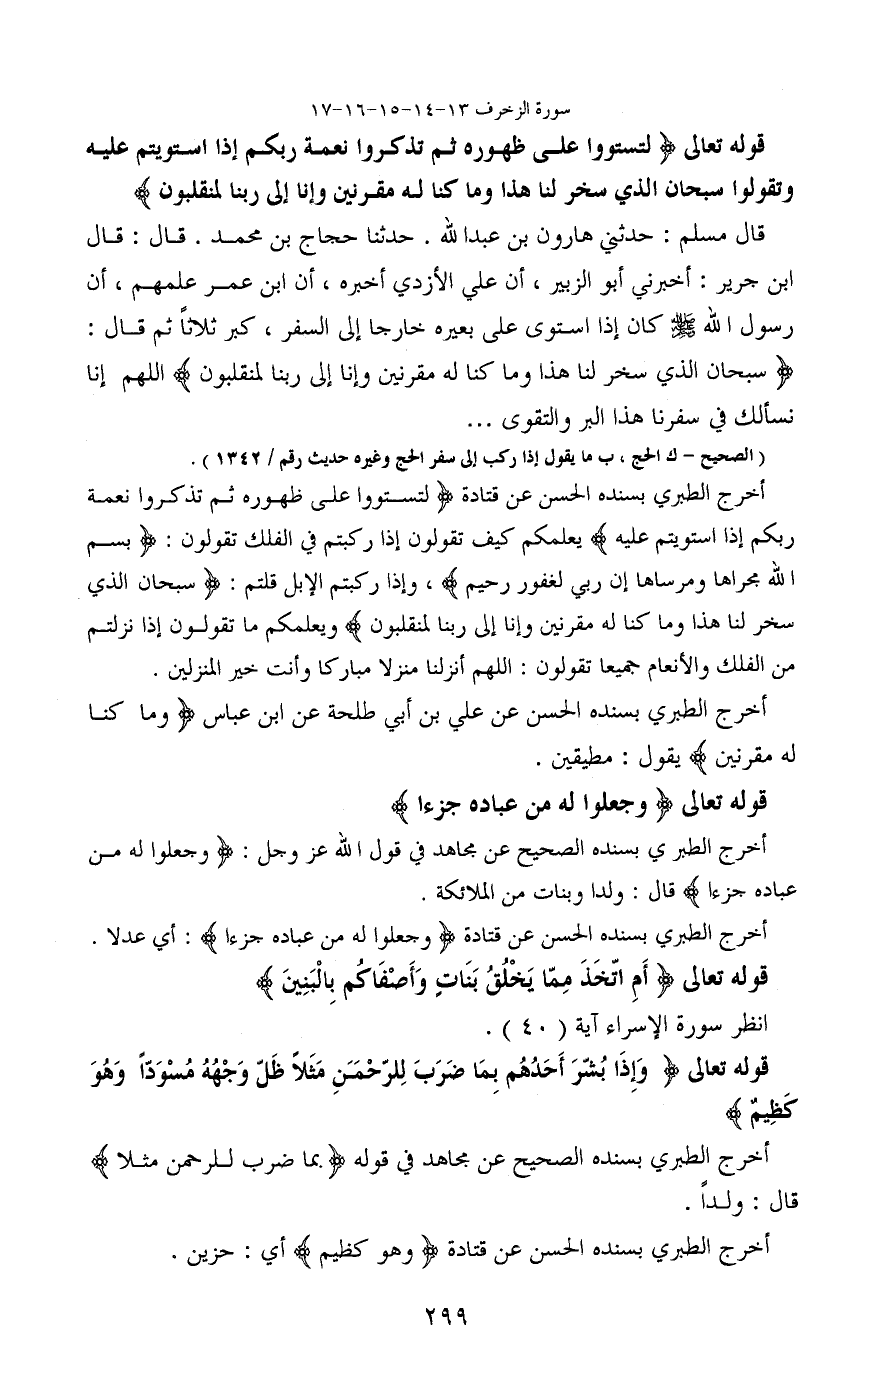 سورة الزخرف ١٣-١٤-١٥-١٦-١٧
قوله تعالى ﴿ لتستووا على ظهوره ثم تذكروا نعمة ربكم إذا استويتم عليه
وتقولوا سبحان الذي سخر لنا هذا وما كنا له مقرنين وإنا إلى ربنا لمنقلبون ﴾
قال مسلم : حدثني هارون بن عبدا لله . حدثنا حجاج بن محمد . قال : قال
ابن جرير : أخبرني أبو الزبير ، أن علي الأزدي أخبره ، أن ابن عمر علمهم ، أن
رسول ا لله ﷺ كان إذا استوى على بعيره خارجا إلى السفر ، كبر ثلاثاً ثم قال :
﴿ سبحان الذي سخر لنا هذا وما كنا له مقرنين وإنا إلى ربنا لمنقلبون ﴾ اللهم إنا
نسألك في سفرنا هذا البر والتقوى ...
( الصحيح – ك الحج ، ب ما يقول إذا ركب إلى سفر الحج وغيره حديث رقم / ١٣٤٢ ) .
أخرج الطبري بسنده الحسن عن قتادة ﴿ لتستووا على ظهوره ثم تذكروا نعمة
ربكم إذا استويتم عليه ﴾ يعلمكم كيف تقولون إذا ركبتم في الفلك تقولون : ﴿ بسم
ا لله مجراها ومرساها إن ربي لغفور رحيم ﴾ ، وإذا ركبتم الإبل قلتم : ﴿ سبحان الذي
سخر لنا هذا وما كنا له مقرنين وإنا إلى ربنا لمنقلبون ﴾ ويعلمكم ما تقولون إذا نزلتم
من الفلك والأنعام جميعا تقولون : اللهم أنزلنا منزلا مباركا وأنت خير المنزلين .
أخرج الطبري بسنده الحسن عن علي بن أبي طلحة عن ابن عباس ﴿ وما كنا
له مقرنين ﴾ يقول : مطيقين .
قوله تعالى ﴿ وجعلوا له من عباده جزءا ﴾
أخرج الطبر ي بسنده الصحيح عن مجاهد في قول ا لله عز وجل : ﴿ وجعلوا له من
عباده جزءا ﴾ قال : ولدا وبنات من الملائكة .
أخرج الطبري بسنده الحسن عن قتادة ﴿ وجعلوا له من عباده جزءا ﴾ : أي عدلا .
قوله تعالى ﴿ أَمِ اتّخَذَ مِمّا يَخْلُقُ بَنَاتٍ وَأَصْفَاكُم بِالْبَنِينَ ﴾
انظر سورة الإسراء آية ( ٤٠ ) .
قوله تعالى ﴿ وَإِذَا بُشّرَ أَحَدُهُم بِمَا ضَرَبَ لِلرّحْمَـنِ مَثَلاً ظَلّ وَجْهُهُ مُسْوَدّاً وَهُوَ
كَظِيمٌ ﴾
أخرج الطبري بسنده الصحيح عن مجاهد في قوله ﴿ بما ضرب للرحمن مثلا ﴾
قال : ولداً .
أخرج الطبري بسنده الحسن عن قتادة ﴿ وهو كظيم ﴾ أي : حزين .
٢٩٩